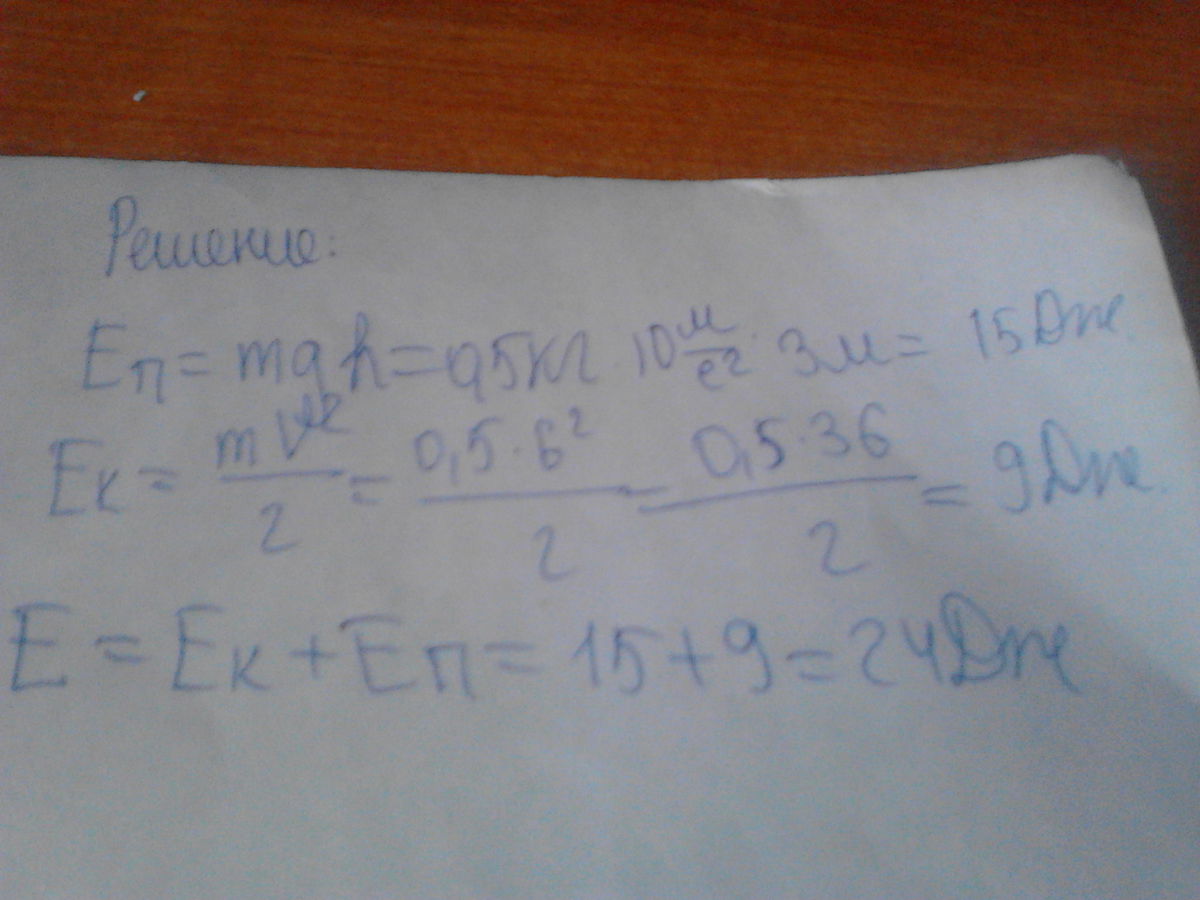 Решение:
Eп = mgh = 0,5кг · 10 м/с² · 3м = 15Дж.
Eк = mV²/2 = 0,5·6²/2 = 0,5·36/2 = 9Дж.
E = Eк + Eп = 15 + 9 = 24Дж